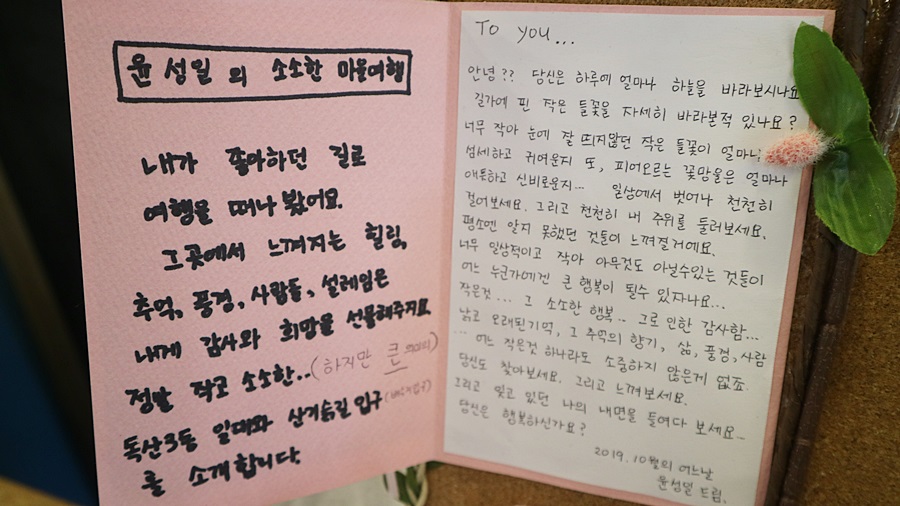 윤성일의 소소한 마을여행
내가 좋아하던 길로
여행을 떠나 봤어요.
그곳에서 느껴지는 힐링,
추억, 풍경, 사람들, 설레임은
내게 감사와 희망을 선물해주지요
정말 작고 소소한..(하지만 큰 의미의)
독산3동 일대와 산기슭길 입구
를 소개합니다.
To you...
안녕?? 당신은 하루에 얼마나 하늘을 바라보시나요
길가에 핀 작은 들꽃을 자세히 바라본적 있나요?
너무 작아 눈에 잘 띄지않던 작은 들꽃이 얼마나
섬세하고 귀여운지 또, 피어오르는 꽃망울은 얼마나
애틋하고 신비로운지... 일상에서 벗어나 천천히
걸어보세요. 그리고 천천히 내 주위를 둘러보세요.
평소엔 알지 못했던 것들이 느껴질거에요.
너무 일상적이고 작아 아무것도 아닐수있는 것들이
어느 누군가에겐 큰 행복이 될수 있자나요...
작은것... 그 소소한 행복.. 그로 인한 감사함...
낡고 오래된기억, 그 추억의 향기, 삶, 풍경, 사람
... 어느 작은것 하나라도 소중하지 않은게 없죠
당신도 찾아보세요. 그리고 느껴보세요.
그리고 잊고 있던 나의 내면을 들여다 보세요...
당신은 행복하신가요?
2019. 10월의 어느날
윤성일 드림.